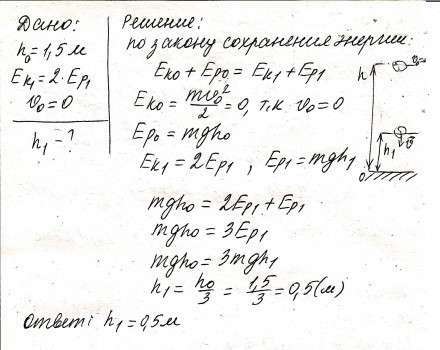 Дано:
h₀ = 1,5 м
Eк₁ = 2·Eр₁
v₀ = 0
h₁ - ?
Решение:
по закону сохранения энергии:
Eк₀ + Eр₀ = Eк₁ + Eр₁
Eк₀ = mv₀²/2 = 0, т.к. v₀ = 0
Eр₀ = mgh₀
Eк₁ = 2Eр₁ , Eр₁ = mgh₁
mgh₀ = 2Eр₁ + Eр₁
mgh₀ = 3Eр₁
mgh₀ = 3mgh₁
h₁ = h₀/3 = 1,5/3 = 0,5 (м)
h
v₀
v
h₁
0
Ответ: h₁ = 0,5 м